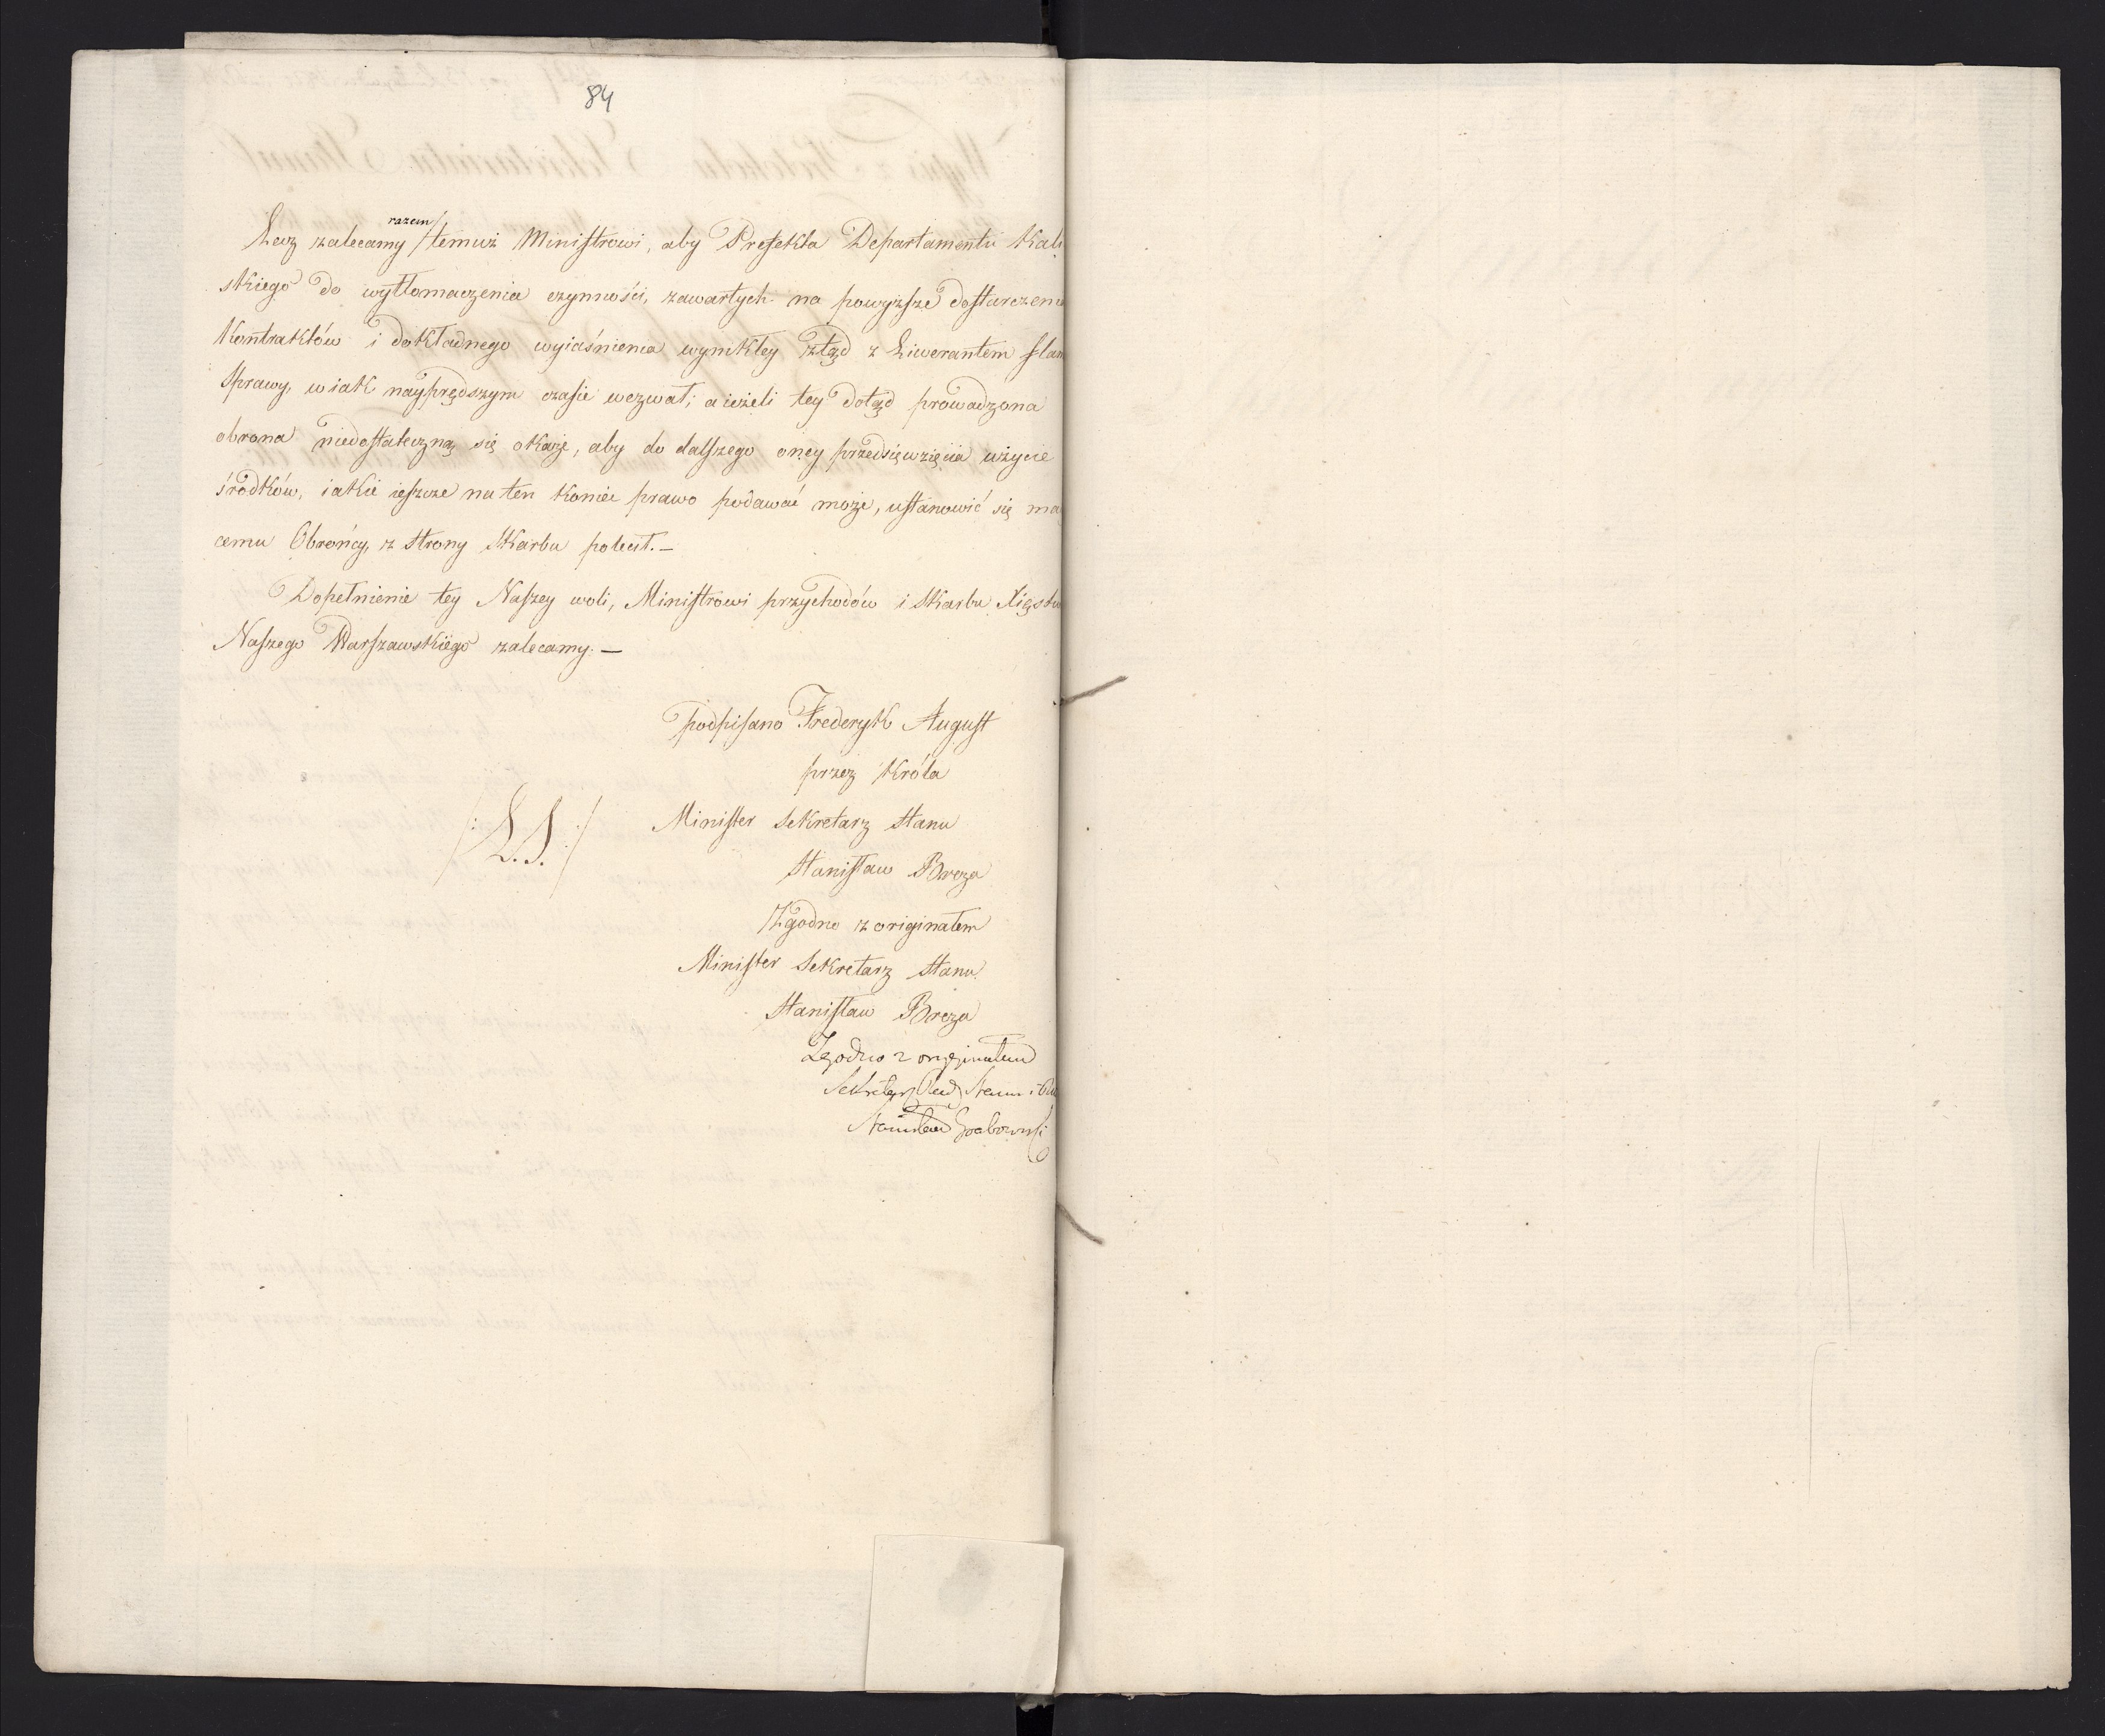 84
razem
Lecz zalecamy / temuż Ministrowi, aby Prefekta Departamentu Kali
skiego do wytłomaczenia czynności, zawartych na powyższe dostarczenie
Kontraktów i dokładnego wyiaśnienia wynikłey ztąd z Liwerantem
Sprawy, w iak nayprędszym czasie wezwał; a ieżeli tey dotąd prowadzona
obrona niedostateczną się okaże, aby do dalszego oney przedsięwzięcia użycie
środków, iakie ieszcze na ten koniec prawo podawać może, ustanowić się ma
cemu Obrońcy, z strony Skarbu polecił. —
Dopełnienie tey Naszey woli, Ministrowi przychodów i Skarbu Xięstw
Naszego Warszawskiego zalecamy. —
podpisano Frederyk August
przez Króla
/: L.S. :/ Minister Sekretarz Stanu
Stanisław Breza
Zgodno z originałem
Minister Sekretarz Stanu
Stanisław Breza
Zgodno z oryginałem
Sekretarz Rady Stanu i
Stanisław Grabowski